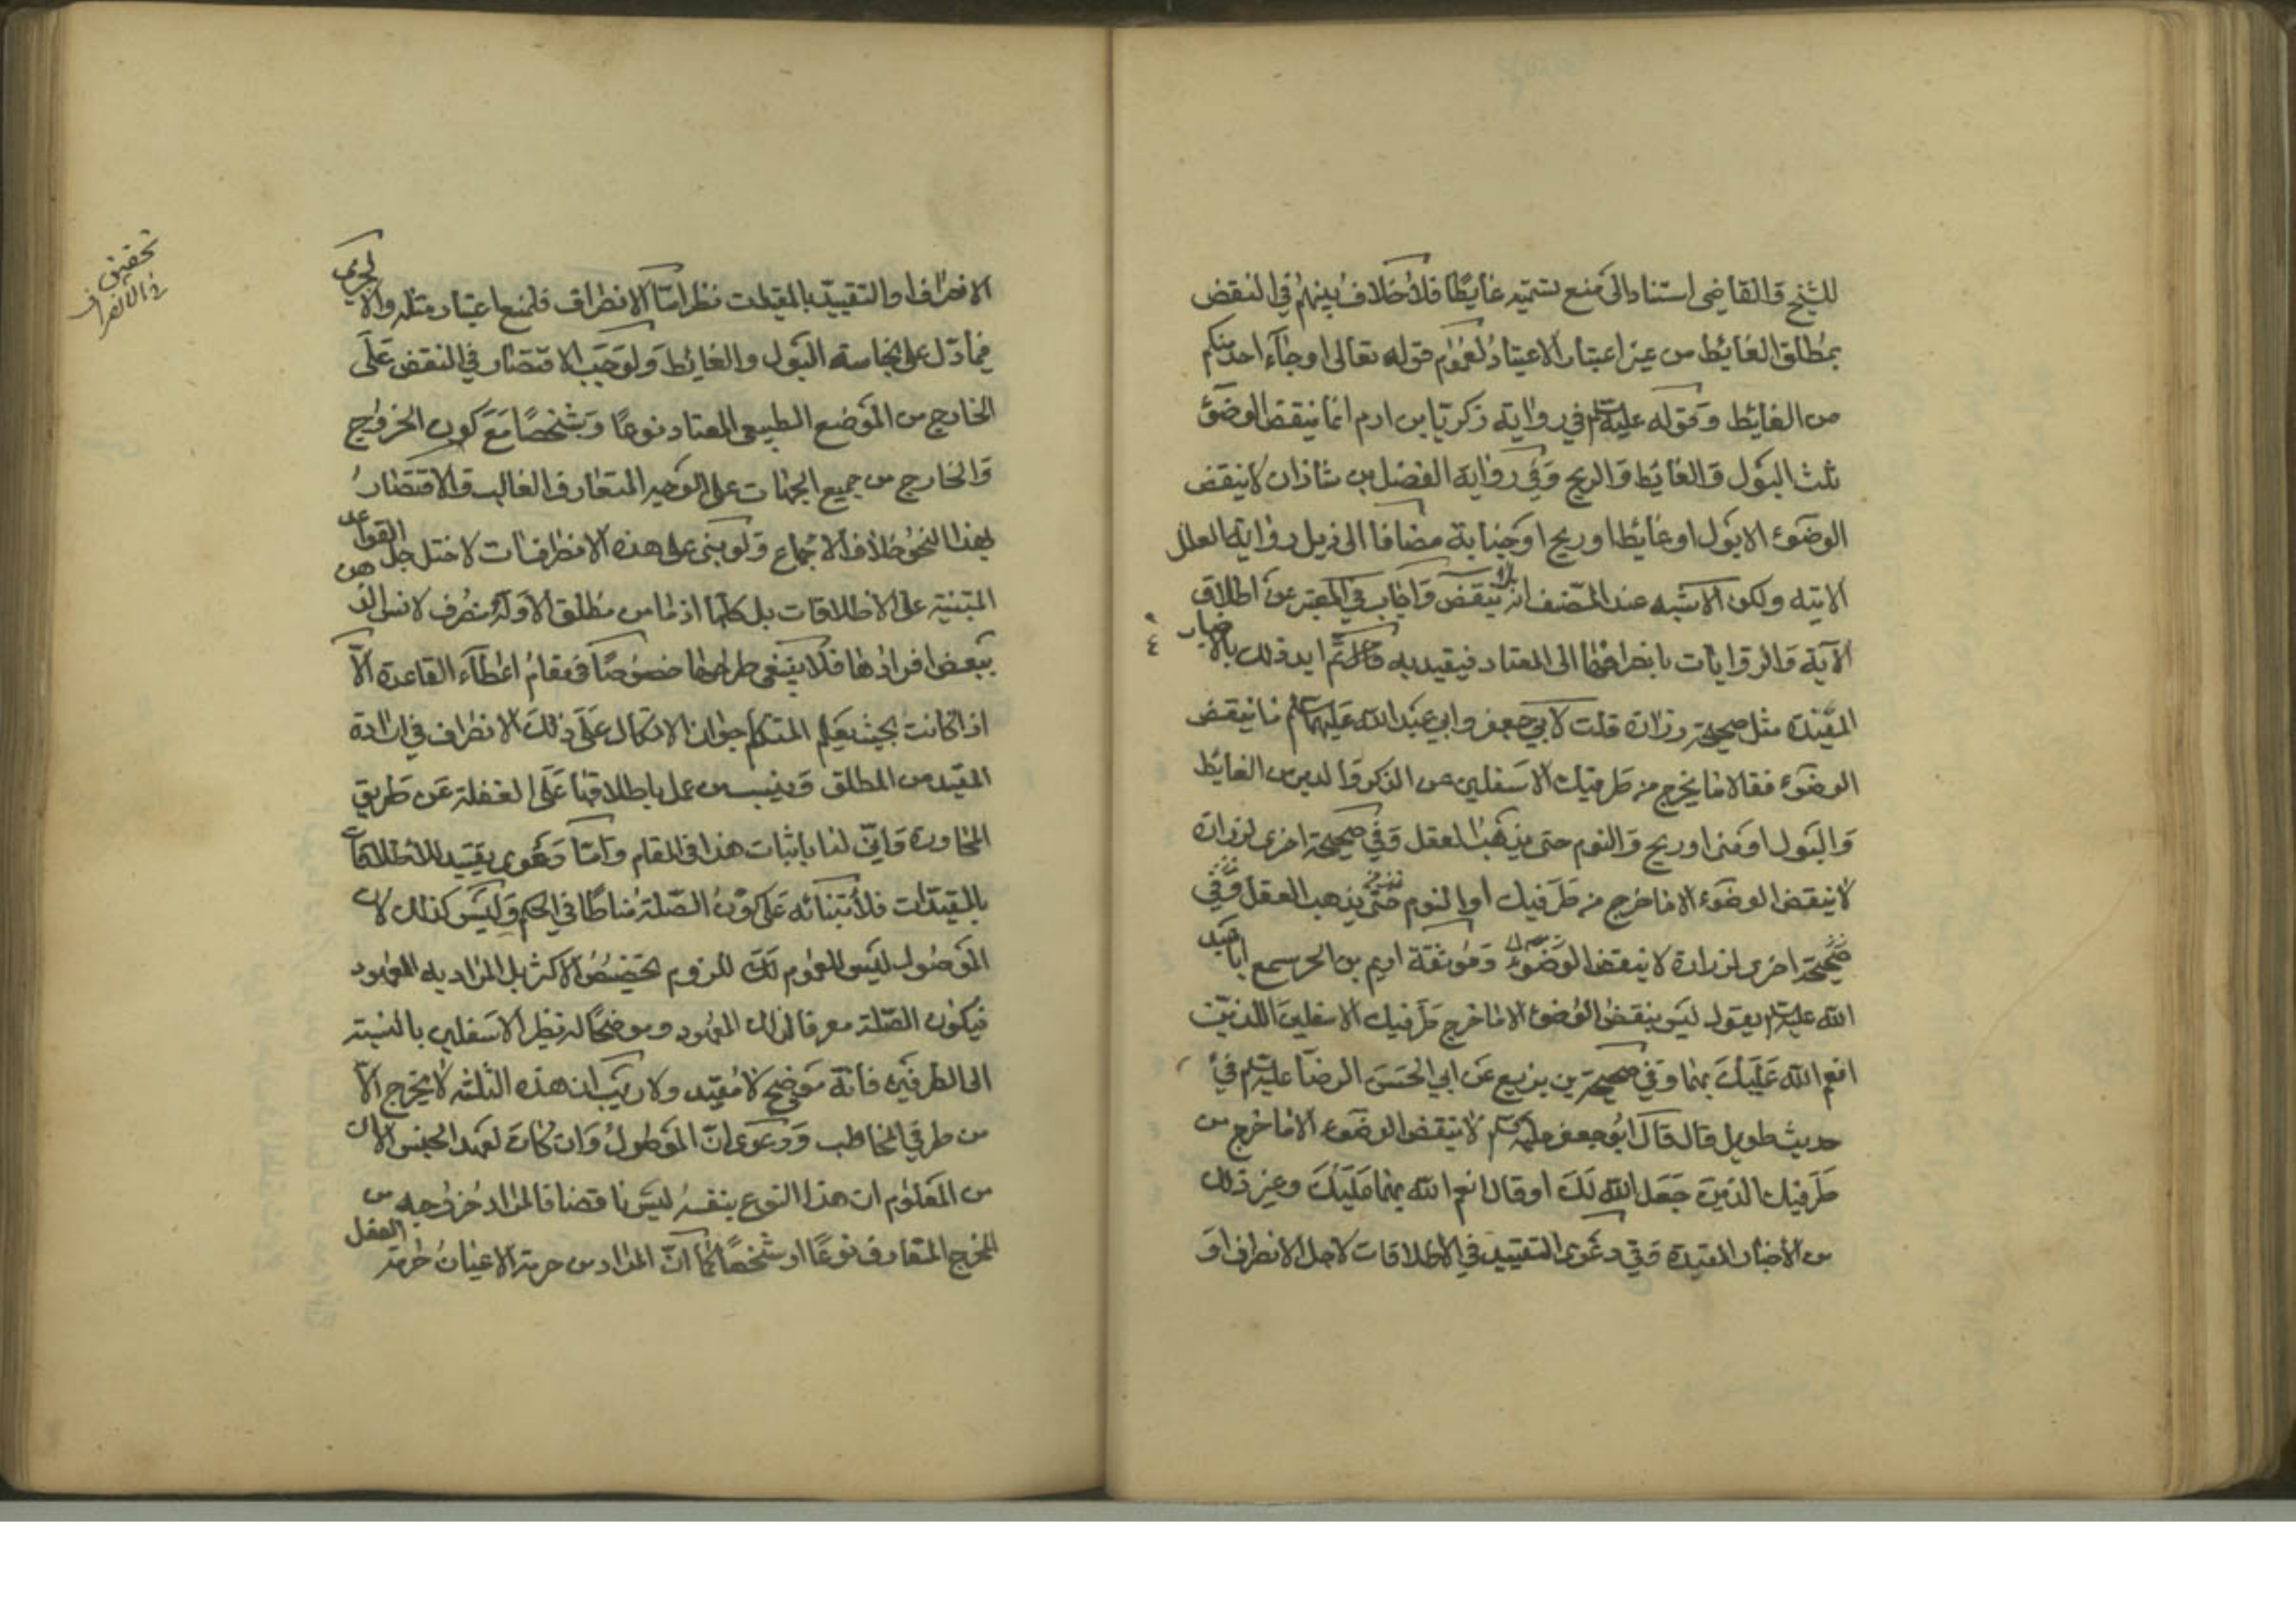 للشيخ والقاضي استنادا الى منع تسميته غايطا فلا خلاف بينهم في النقض
بمطلق الغائط من غير اعتبار الاعتياد لعموم قوله تعالى او جاء احد منكم
من الغايط وقوله عليه السلم في رواية زكريا بن ادم انما ينقض الوضوء
ثلث البول والغايط والريح وفي رواية الفضل بن شاذان لا ينقض
الوضوء الا بول او غايط او ريح او جنابة مضافا الى ذيل رواية العلل
الاتيه ولكن الاشبه عند المصنف انه لا ينقض واجاب في المعتبر عن اطلاق
الآية والروايات بانصرافهما الى المعتاد فيقيد به ثم ايد ذلك بالاخبار
المقيدة مثل صحيحة زرارة قلت لابي جعفر وابي عبد الله عليهما السلم ما ينقض
الوضوء فقالا ما يخرج من طرفيك الاسفلين من الذكر والدبر من الغايط
والبول او مني او ريح والنوم حتى يذهب العقل وفي صحيحة اخرى لزرارة
لا ينقض الوضوء الا ما خرج من طرفيك او النوم حتى يذهب العقل وفي
صحيحة اخرى لزرارة لا ينقض الوضوء وموثقة اديم بن الحر سمع ابا عبد
الله عليه السلم يقول ليس ينقض الوضوء الا ما خرج من طرفيك الاسفلين اللذين
انعم الله عليك بهما وفي صحيحة بن بزيع عن ابي الحسن الرضا عليه السلم في
حديث طويل قال قال ابو جعفر عليه السلم لا ينقض الوضوء الا ما خرج من
طرفيك الذين جعل الله لك او قال انعم الله بهما عليك وغير ذلك
من الأخبار المقيدة وفي دعوى التقييد في الاطلاقات لاجل الانصراف او
تحقيق
في الانصراف
الانصراف او التقييد بالمقيدات نظر اما الانصراف فلمنع اعتبار مثله والا لجرى
فيما دل على نجاسة البول والغايط ولوجب الاقتصار في النقض على
الخارج من الموضع الطبيعي المعتاد نوعا وشخصا مع كون الخروج
والخارج من جميع الجهات على الوجه المتعارف الغالب والاقتصار
بهذا النحو خلاف الاجماع ولو بنى على هذه الانصرافات لاختل جل القواعد
المبتنية على الاطلاقات بل كلها اذ ما من مطلق الا وله منصرف لانس الذهن
ببعض افرادها فلا ينبغي طرحها خصوصا في مقام اعطاء القاعدة الا
اذا كانت بحيث يعلم المتكلم جواز الاتكال على ذلك الانصراف في ارادة
المقيد من المطلق وينسب من عمل باطلاقها على الغفلة عن طريق
المحاورة وانى لنا باثبات هذا في المقام واما دعوى تقييد الاطلاقات
بالمقيدات فلابتنائه على كون الصلة مناطا في الحكم وليس كذلك لان
الموصول ليس للعموم للزوم تخصيص الاكثر بل المراد به المعهود
فيكون الصلة معرفا لذلك المعهود وموضحا له نظير الاسفلين بالنسبة
الى الطرفين فانه موضح لا مقيد ولا ريب ان هذه الثلثة لا يخرج الا
من طرفي المخاطب ودعوى ان الموصول وان كان لعهد الجنس الا ان
من المعلوم ان هذا النوع بنفسه ليس ناقضا فالمراد خروجه من
المخرج المتعارف نوعا او شخصا كما ان المراد من حرمة الاعيان حرمة الفعل